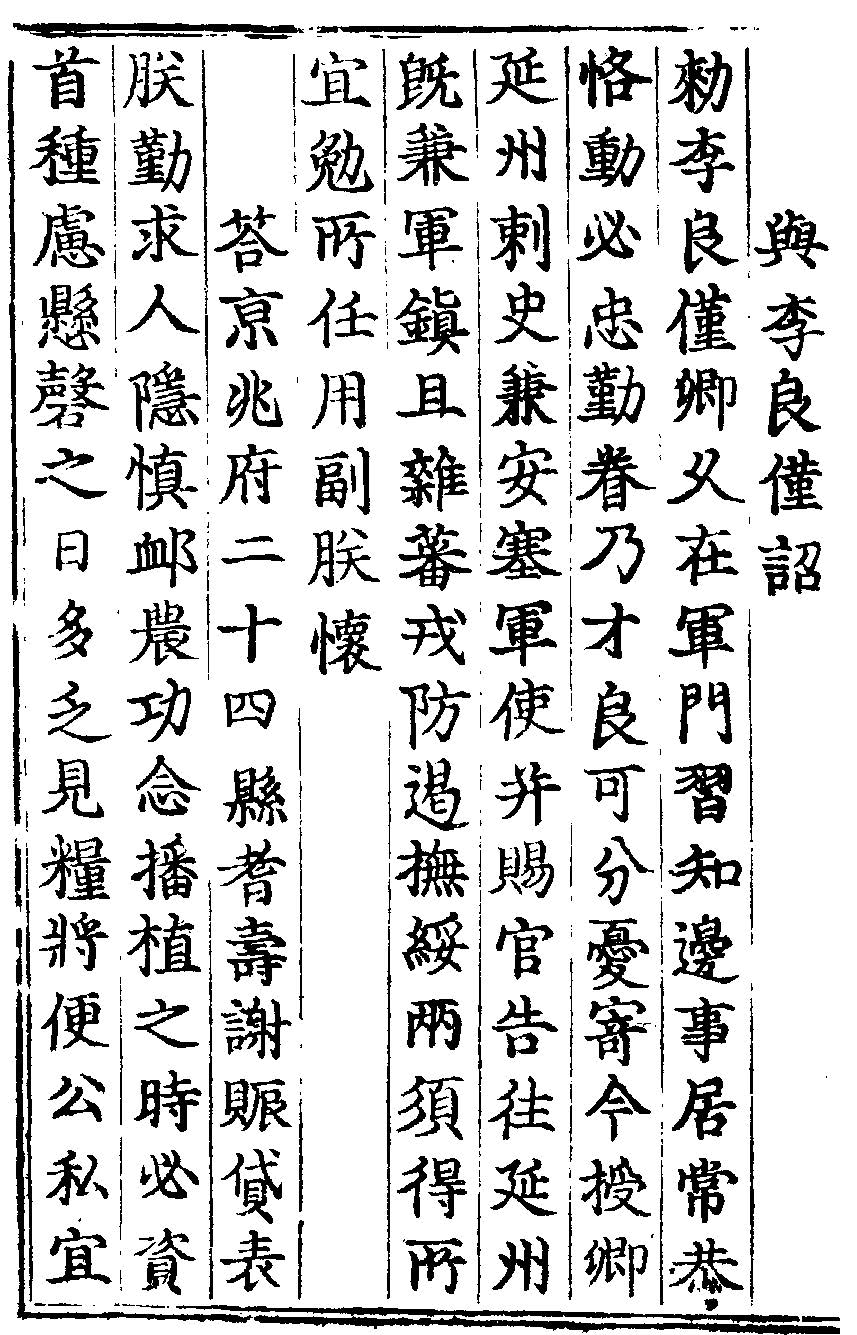 與李良僅詔
勑李良僅卿久在軍門習知邊事居常恭
恪動必忠勤眷乃才良可分憂寄今授卿
延州刺史兼安塞軍使并賜官告往延州
旣兼軍鎭且雜蕃戎防遏撫綏兩須得所
宜勉所任用副朕懷
荅京兆府二十四縣耆壽謝賑貸表
朕勤求人隱愼衈農功念播植之時必資
首種慮懸磬之日多乏見糧將便公私宜